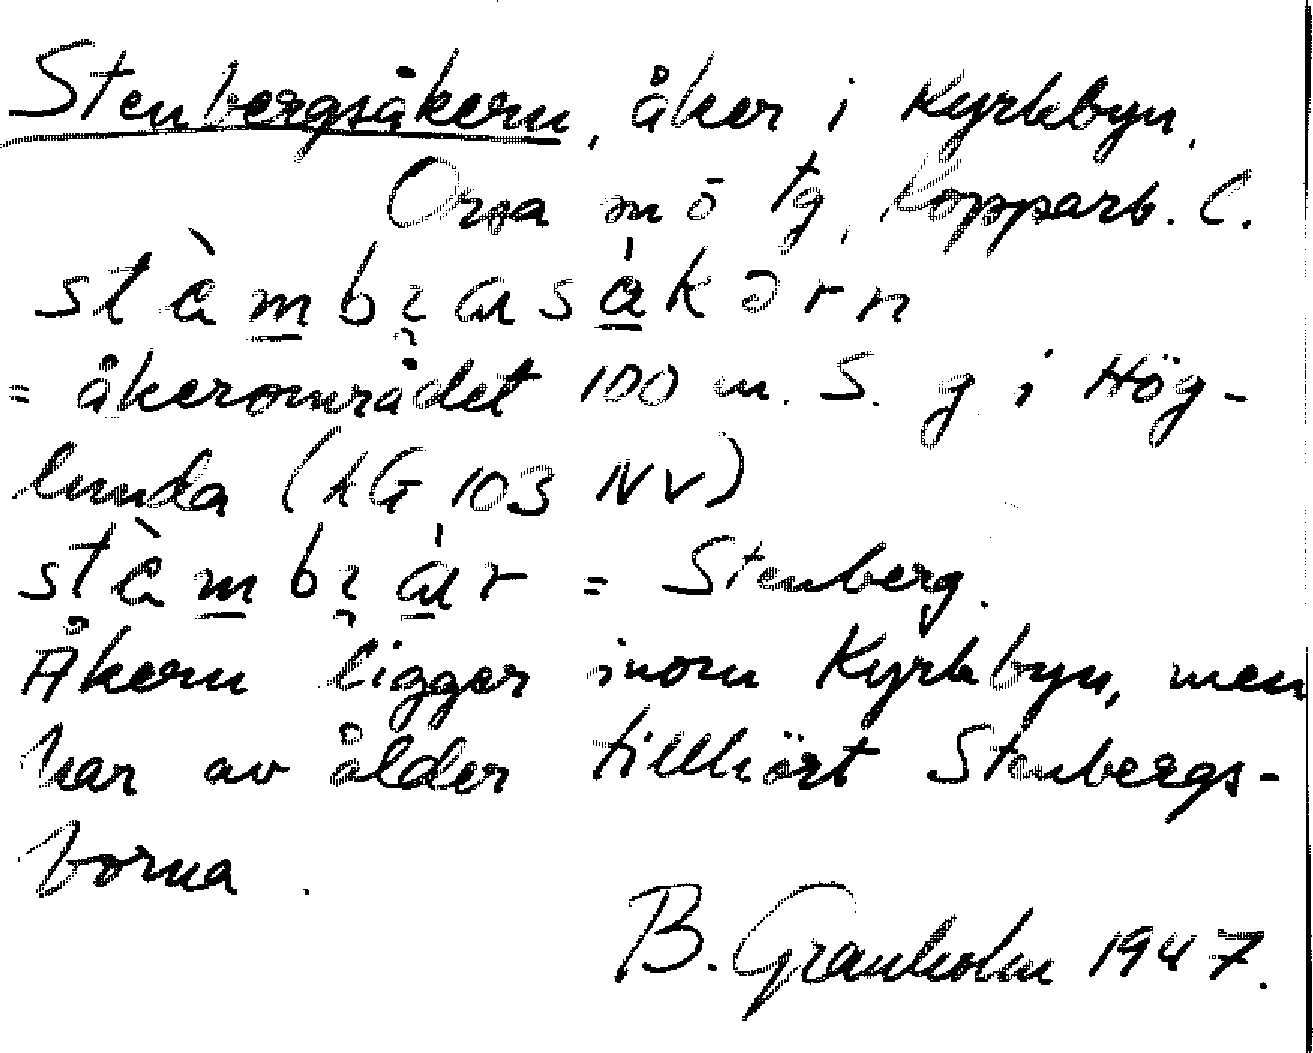 Stenbergsåkern, åker i Kyrkbyn,
Orsa sn ö tg, Kopparb. l.
= åkerområdet 100 m. S. g i Hög-
lunda (LG 103 NV)
= Stenberg.
Åkern ligger inom Kyrkbyn, men
har av ålder tillhört Stenbergs-
borna.
B. Granholm 1947.